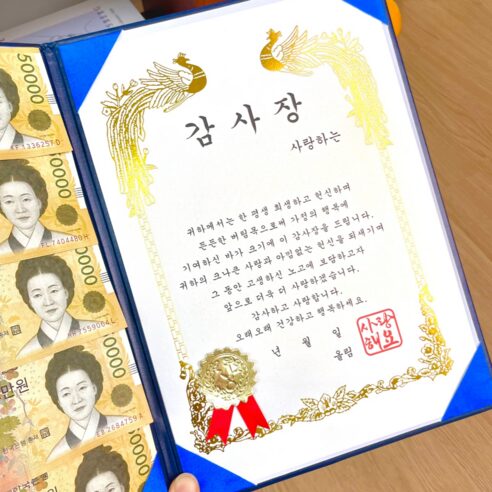 감사장
사랑하는
귀하에서는 한 평생 희생하고 헌신하며
든든한 버팀목으로써 가정의 행복에
기여하신 바가 크기에 이 감사장을 드립니다.
귀하의 크나큰 사랑과 아낌없는 헌신을 되새기며
그 동안 고생하신 노고에 보답하고자
앞으로 더욱 더 사랑하겠습니다.
감사하고 사랑합니다.
오래오래 건강하고 행복하세요.
년 월 일
올림
사랑
해요
50000
50000
50000
50000
만원